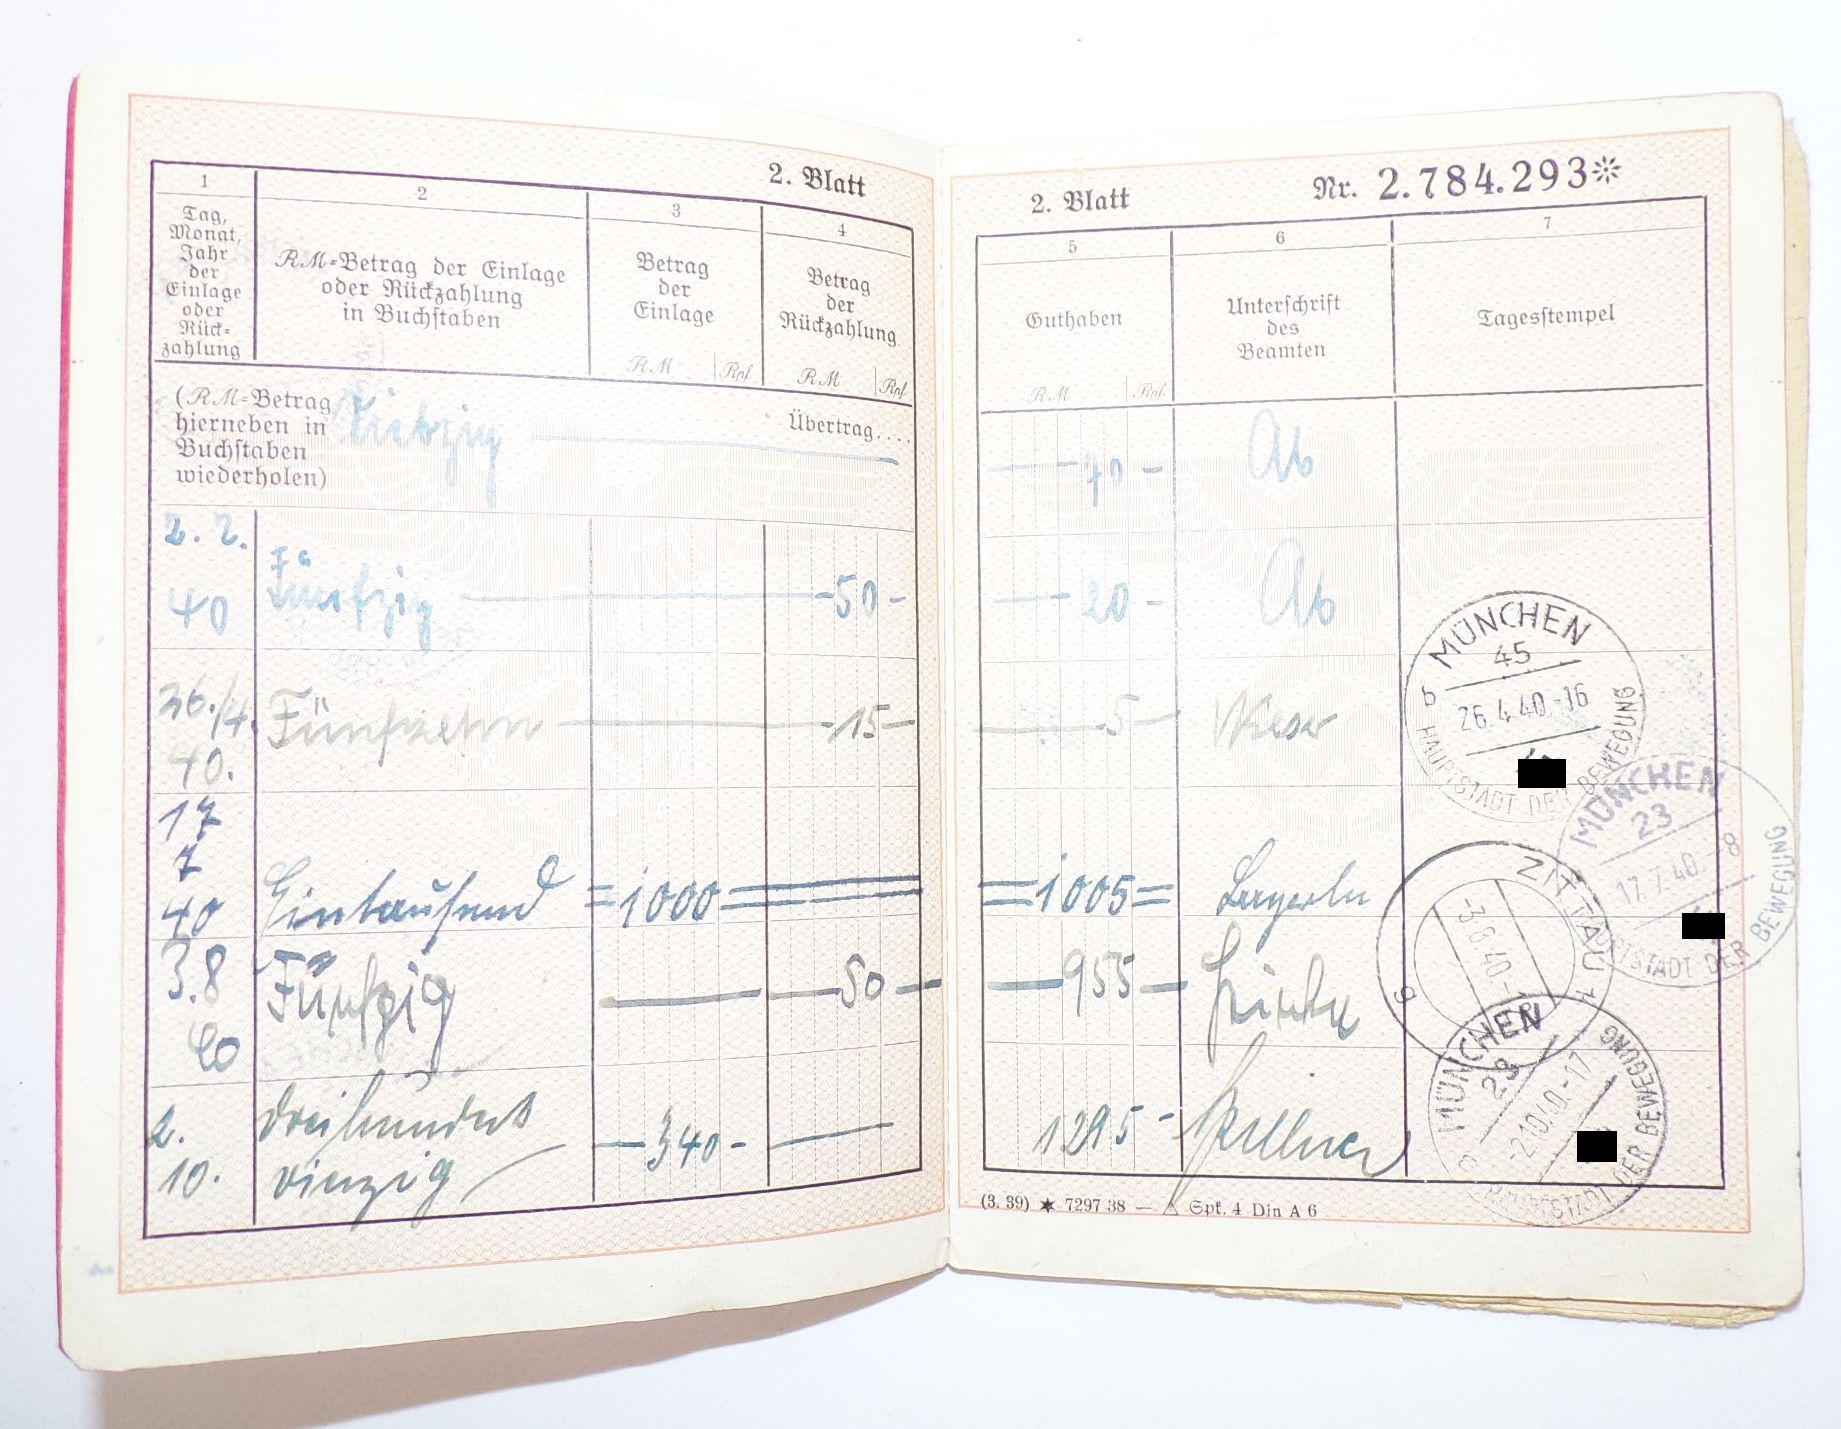 2. Blatt
1
2
3
4
Tag,
Monat,
Jahr
der
Einlage
oder
Rück=
zahlung
RM=Betrag der Einlage
oder Rückzahlung
in Buchstaben
Betrag
der
Einlage
RM Rpf.
Betrag
der
Rückzahlung
RM Rpf.
(RM=Betrag
hierneben in
Buchstaben
wiederholen)
Siebzig
Übertrag....
2. 2.
40
Fünfzig — 50 -
26./4.
40.
Fünfzehn — 15 —
17
7
40
Eintausend = 1000 =
3.8
40
Fünfzig — 50 —
2.
10.
dreihundert
vierzig
— 340 - —
2. Blatt
Nr. 2.784.293
5
6
7
Guthaben
RM Rpf.
Unterschrift
des
Beamten
Tagesstempel
— 70 - Ab
— 20 - Ab
— 5 —
= 1005 =
— 955 —
1295 -
MÜNCHEN
45
b
26.4.40.-16
HAUPTSTADT DER BEWEGUNG
MÜNCHEN
23
17.7.40.-8
HAUPTSTADT DER BEWEGUNG
ZITTAU 1
-3.8.40.-
g
MÜNCHEN
23
-2.10.40.-17
HAUPTSTADT DER BEWEGUNG
(3. 39) ✶ 7297 38 — Spk. 4 Din A 6